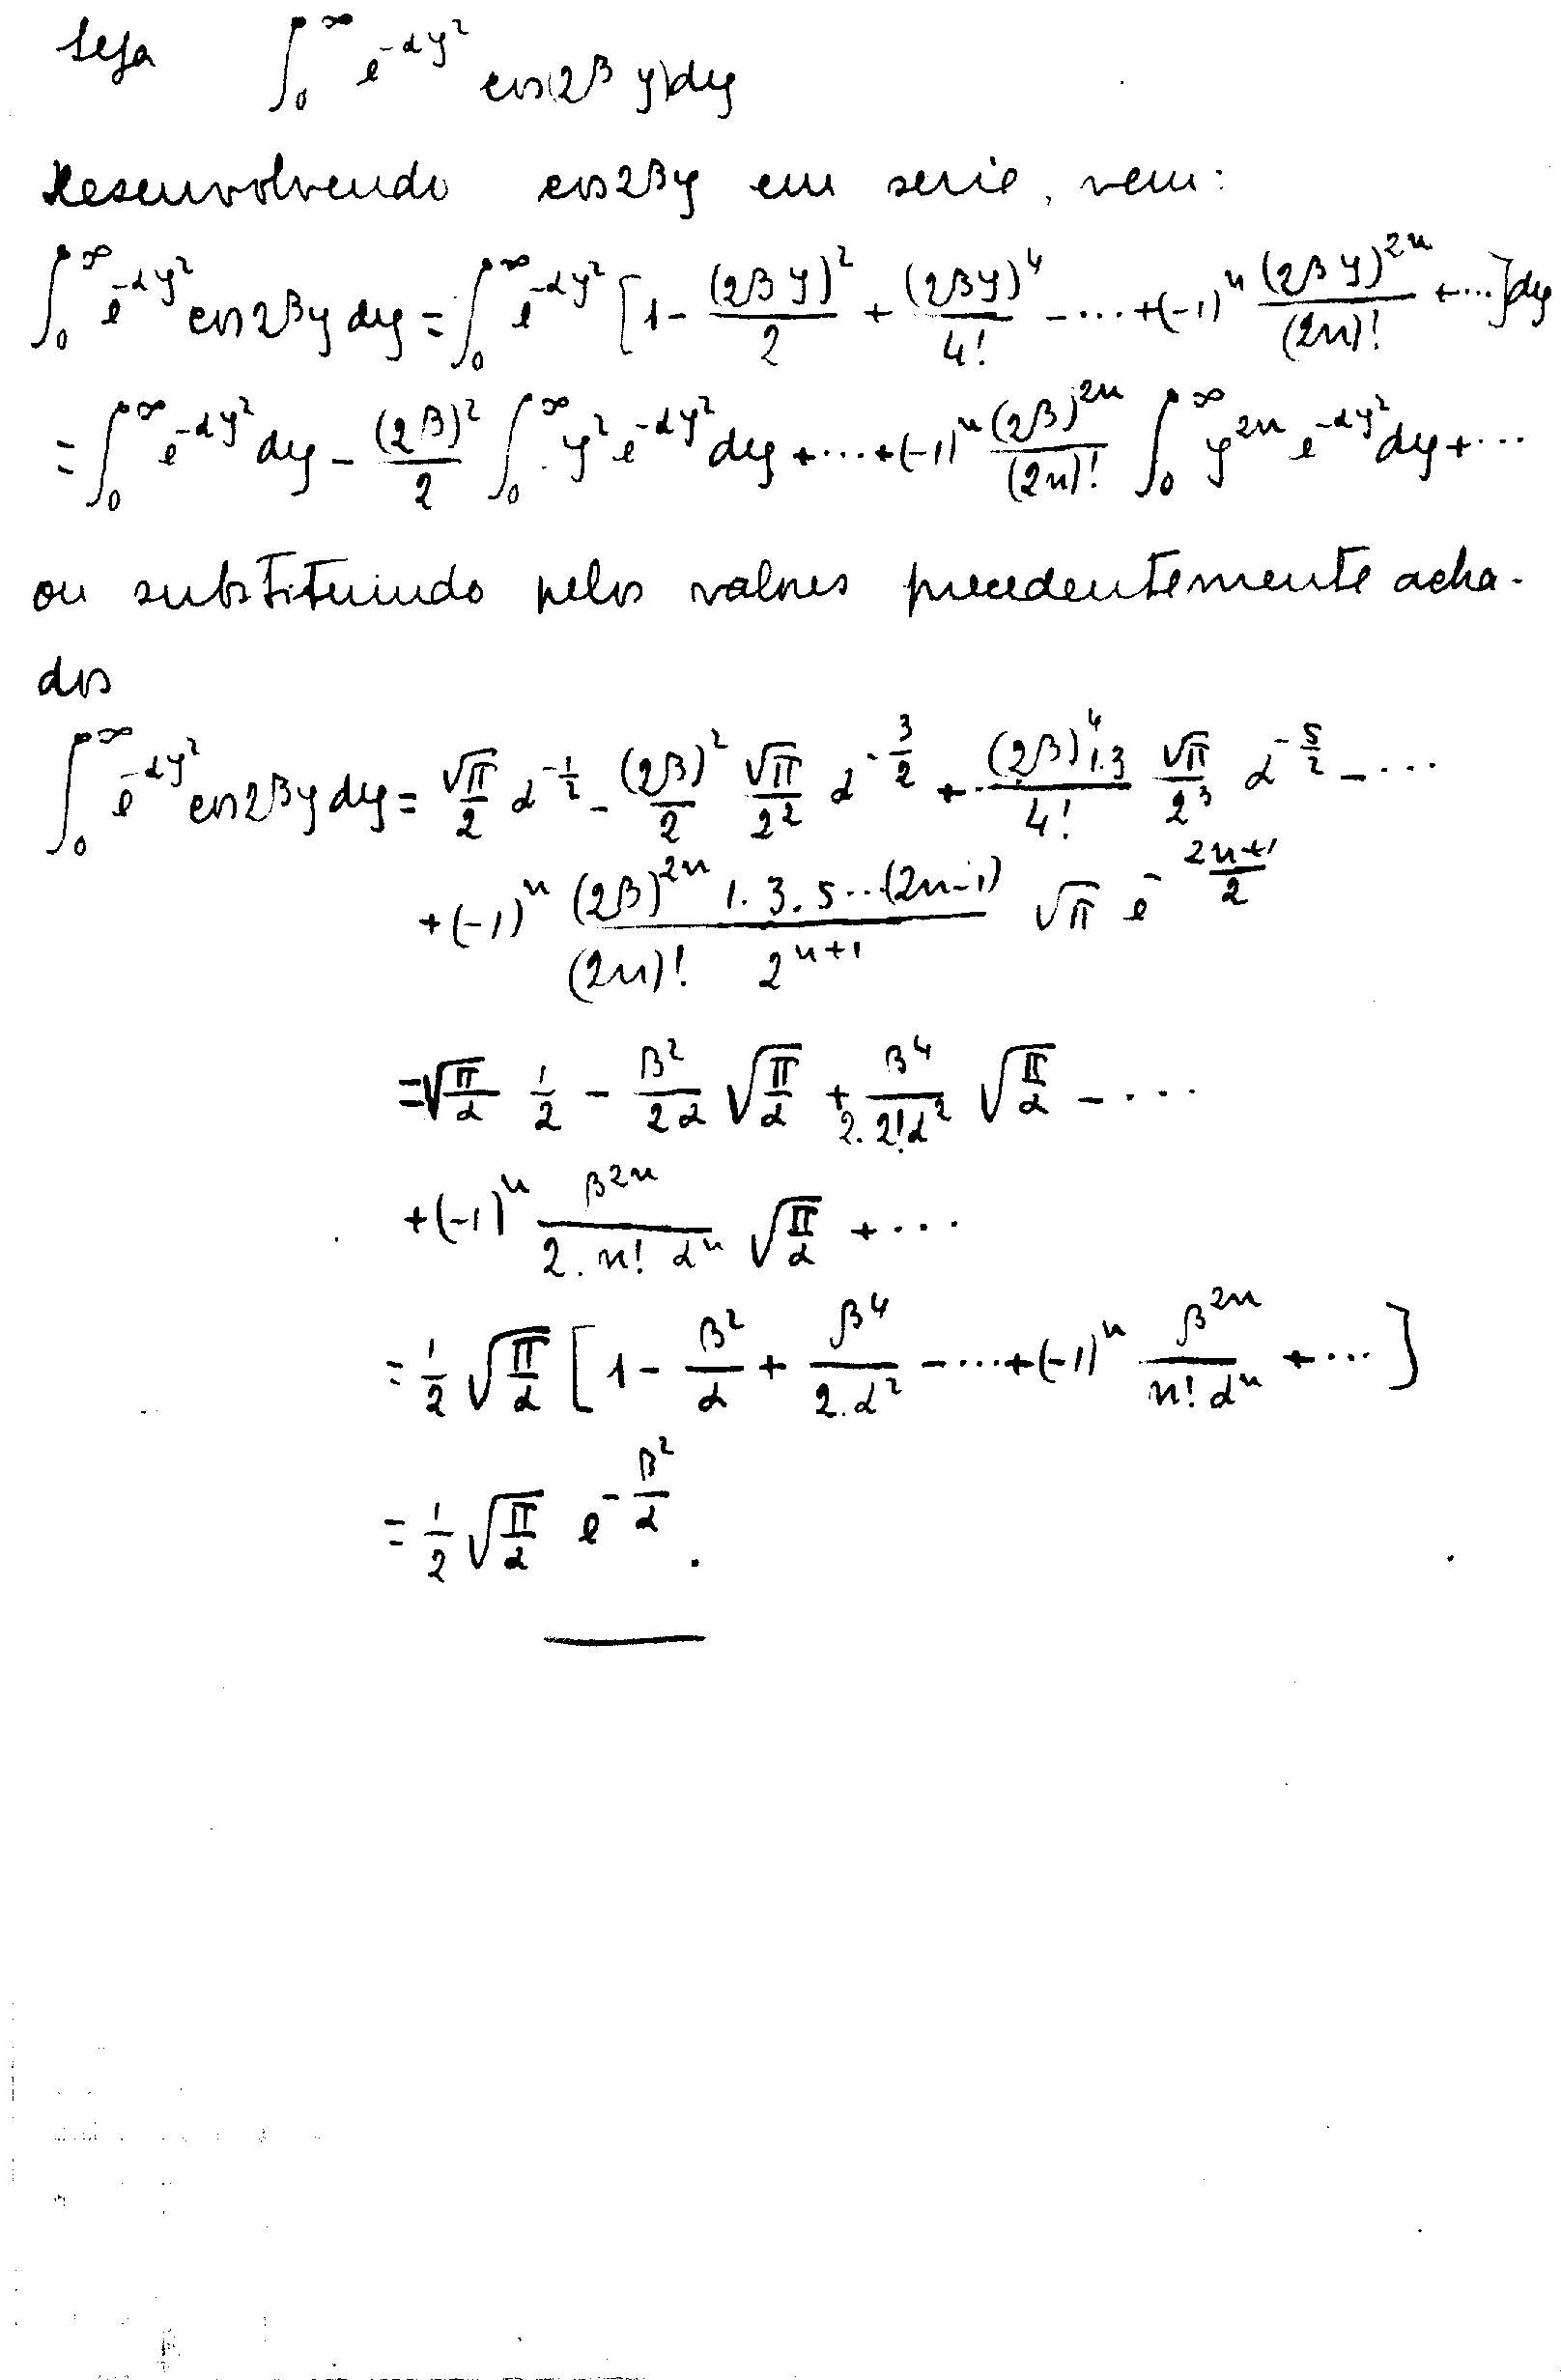 Seja ∫₀^∞ e^{-αy²} cos(2βy)dy
Desenvolvendo cos2βy em serie, vem:
∫₀^∞ e^{-αy²} cos2βy dy = ∫₀^∞ e^{-αy²} [1 - (2βy)²/2 + (2βy)⁴/4! - ... + (-1)^n (2βy)^{2n}/(2n)! + ...]dy
= ∫₀^∞ e^{-αy²} dy - (2β)²/2 ∫₀^∞ y² e^{-αy²} dy + ... + (-1)^n (2β)^{2n}/(2n)! ∫₀^∞ y^{2n} e^{-αy²} dy + ...
ou substituindo pelos valores precedentemente acha-
dos
∫₀^∞ e^{-αy²} cos2βy dy = √π/2 α^{-1/2} - (2β)²/2 √π/2² α^{-3/2} + (2β)⁴1.3/4! √π/2³ α^{-5/2} - ...
+ (-1)^n (2β)^{2n} 1.3.5...(2n-1)/((2n)! 2^{n+1}) √π e^{-(2n+1)/2}
= √(π/α) 1/2 - β²/(2α) √(π/α) + β⁴/(2.2!α²) √(π/α) - ...
+ (-1)^n β^{2n}/(2.n! α^n) √(π/α) + ...
= 1/2 √(π/α) [1 - β²/α + β⁴/(2.α²) - ... + (-1)^n β^{2n}/(n! α^n) + ...]
= 1/2 √(π/α) e^{-β²/α}.